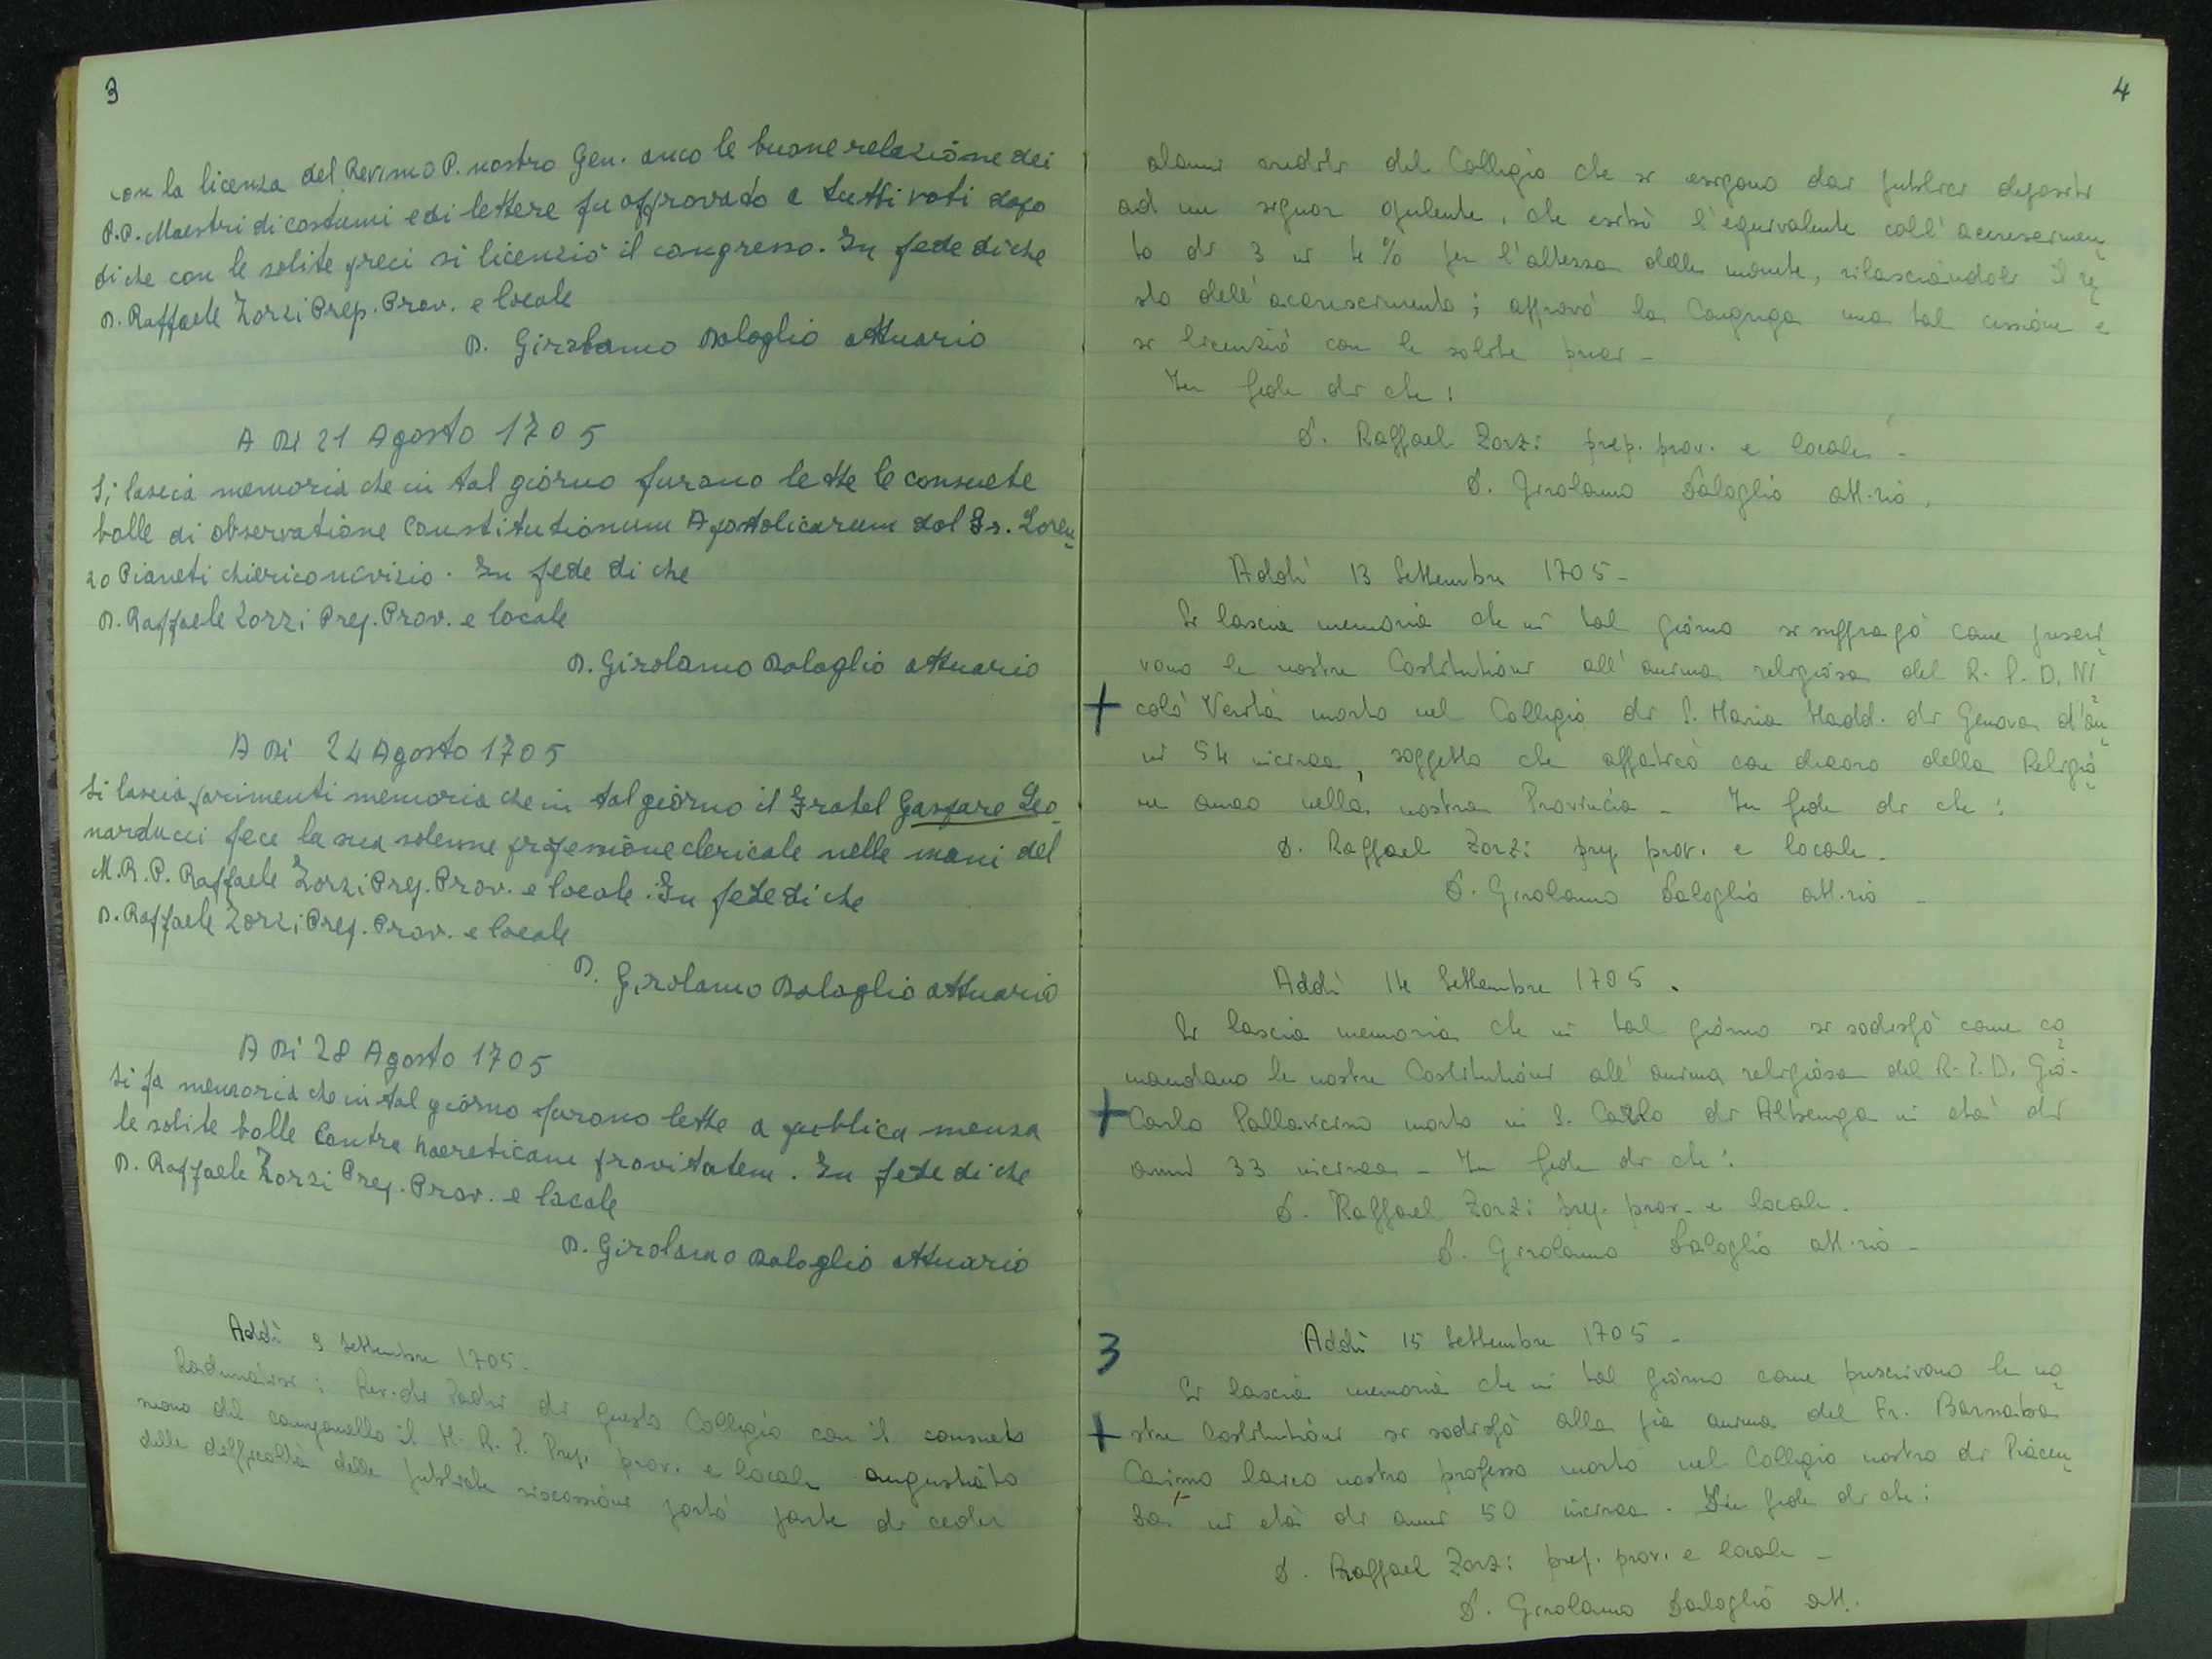 3
con la licenza del Rev.mo P. nostro Gen. anco le buone relazione dei
P.P. Maestri di costumi e di lettere fu approvato a tutti voti dopo
di che con le solite preci si licenziò il congresso. In fede di che
D. Raffaele Zorzi Prep. Prov. e locale
D. Girolamo Baloglio Attuario
A Dì 21 Agosto 1705
Si lascia memoria che in tal giorno furono lette le consuete
bolle di observatione Constitutionum Apostolicarum dal Fr. Loren-
zo Pianeti chierico novizio. In fede di che
D. Raffaele Zorzi Prep. Prov. e locale
D. Girolamo Baloglio Attuario
A Dì 24 Agosto 1705
Si lascia parimenti memoria che in tal giorno il Fratel Gaspare Leo-
narducci fece la sua solenne professione clericale nelle mani del
M. R. P. Raffaele Zorzi Prep. Prov. e locale. In fede di che
D. Raffaele Zorzi Prep. Prov. e locale
D. Girolamo Baloglio Attuario
A Dì 28 Agosto 1705
Si fa memoria che in tal giorno furono lette a publica mensa
le solite bolle Contra haereticam pravitatem. In fede di che
D. Raffaele Zorzi Prep. Prov. e locale
D. Girolamo Baloglio Attuario
Addì 9 Settembre 1705.
Radunatisi i Rev.di Padri di questo Collegio con il consueto
suono del campanello il M. R. P. Prep. prov. e locale angustiato
delle difficoltà delle pubbliche riscossioni portò parte di ceder
4
alcuni crediti del Collegio che si esigono dai pubblici depositi
ad un signor opulente, che esibì l'equivalente coll'accrescimen-
to di 3 in 4 % per l'altezza delle monete, rilasciandoli il re-
sto dell'accrescimento; approvò la Congrega una tal cessione e
si licenziò con le solite preci -
In fede di che:
D. Raffael Zorzi prep. prov. e locale -
D. Girolamo Baloglio att.rio.
Addì 13 Settembre 1705 -
Si lascia memoria che in tal giorno si suffragò come prescri-
vono le nostre Costitutioni all'anima religiosa del R. P. D. Ni-
+ colò Verità morto nel Collegio di S. Maria Madd. di Genova d'an-
ni 54 incirca, soggetto che affaticò con decoro della Religio-
ne anco nella nostra Provincia - In fede di che:
D. Raffael Zorzi prep. prov. e locale -
D. Girolamo Baloglio att.rio -
Addì 14 Settembre 1705.
Si lascia memoria che in tal giorno si sodisfò come co-
mandano le nostre Costitutioni all'anima religiosa del R. P. D. Gio.
+ Carlo Pallavicino morto in S. Carlo di Albenga in età di
anni 33 incirca - In fede di che:
D. Raffael Zorzi prep. prov. e locale.
D. Girolamo Baloglio att.rio -
3
Addì 15 Settembre 1705 -
Si lascia memoria che in tal giorno come prescrivono le no-
+ stre Costitutioni si sodisfò alla pia anima del Fr. Barnaba
Casimo laico nostro professo morto nel Collegio nostro di Piacen-
za in età di anni 50 incirca. In fede di che:
D. Raffael Zorzi prep. prov. e locale -
D. Girolamo Baloglio att.